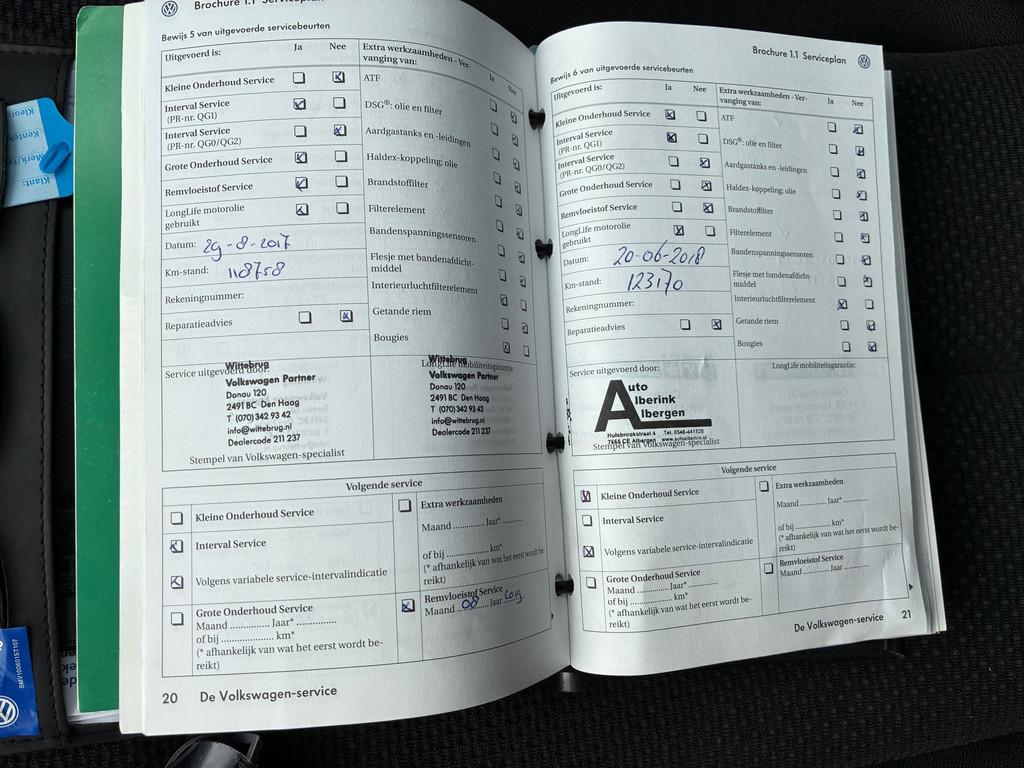 Brochure 1.1 Serviceplan
Bewijs 5 van uitgevoerde servicebeurten
Uitgevoerd is: Ja Nee
Kleine Onderhoud Service
Interval Service
(PR-nr. QG1)
Interval Service
(PR-nr. QG0/QG2)
Grote Onderhoud Service
Remvloeistof Service
LongLife motorolie
gebruikt
Datum: 29-8-2017
Km-stand: 118758
Rekeningnummer:
Reparatieadvies
Extra werkzaamheden - Ver-
vanging van: Ja Nee
ATF
DSG®: olie en filter
Aardgastanks en -leidingen
Haldex-koppeling: olie
Brandstoffilter
Filterelement
Bandenspanningssensoren
Flesje met bandenafdicht-
middel
Interieurluchtfilterelement
Getande riem
Bougies
Service uitgevoerd door:
Wittebrug
Volkswagen Partner
Donau 120
2491 BC Den Haag
T (070) 342 93 42
info@wittebrug.nl
Dealercode 211 237
Stempel van Volkswagen-specialist
LongLife mobiliteitsgarantie:
Wittebrug
Volkswagen Partner
Donau 120
2491 BC Den Haag
T (070) 342 93 42
info@wittebrug.nl
Dealercode 211 237
Volgende service
Kleine Onderhoud Service
Interval Service
Volgens variabele service-intervalindicatie
Grote Onderhoud Service
Maand .............. Jaar* ..............
of bij .................... km*
(* afhankelijk van wat het eerst wordt be-
reikt)
Extra werkzaamheden
Maand .............. Jaar* ..............
of bij .................... km*
(* afhankelijk van wat het eerst wordt be-
reikt)
Remvloeistof Service
Maand 08 Jaar 2019
20 De Volkswagen-service
Brochure 1.1 Serviceplan
Bewijs 6 van uitgevoerde servicebeurten
Uitgevoerd is: Ja Nee
Kleine Onderhoud Service
Interval Service
(PR-nr. QG1)
Interval Service
(PR-nr. QG0/QG2)
Grote Onderhoud Service
Remvloeistof Service
LongLife motorolie
gebruikt
Datum: 20-06-2018
Km-stand: 123170
Rekeningnummer:
Reparatieadvies
Extra werkzaamheden - Ver-
vanging van: Ja Nee
ATF
DSG®: olie en filter
Aardgastanks en -leidingen
Haldex-koppeling: olie
Brandstoffilter
Filterelement
Bandenspanningssensoren
Flesje met bandenafdicht-
middel
Interieurluchtfilterelement
Getande riem
Bougies
Service uitgevoerd door:
Auto
Alberink
Albergen
Hulsbrookstraat 4 Tel. 0546-441520
7665 CE Albergen www.autoalberink.nl
Stempel van Volkswagen-specialist
LongLife mobiliteitsgarantie:
Volgende service
Kleine Onderhoud Service
Interval Service
Volgens variabele service-intervalindicatie
Grote Onderhoud Service
Maand .............. Jaar* ..............
of bij .................... km*
(* afhankelijk van wat het eerst wordt be-
reikt)
Extra werkzaamheden
Maand .............. Jaar* ..............
of bij .................... km*
(* afhankelijk van wat het eerst wordt be-
reikt)
Remvloeistof Service
Maand .............. Jaar ..............
De Volkswagen-service 21
Klant:
Merk/ty
Kentek
Kleur:
SMV100601ST107